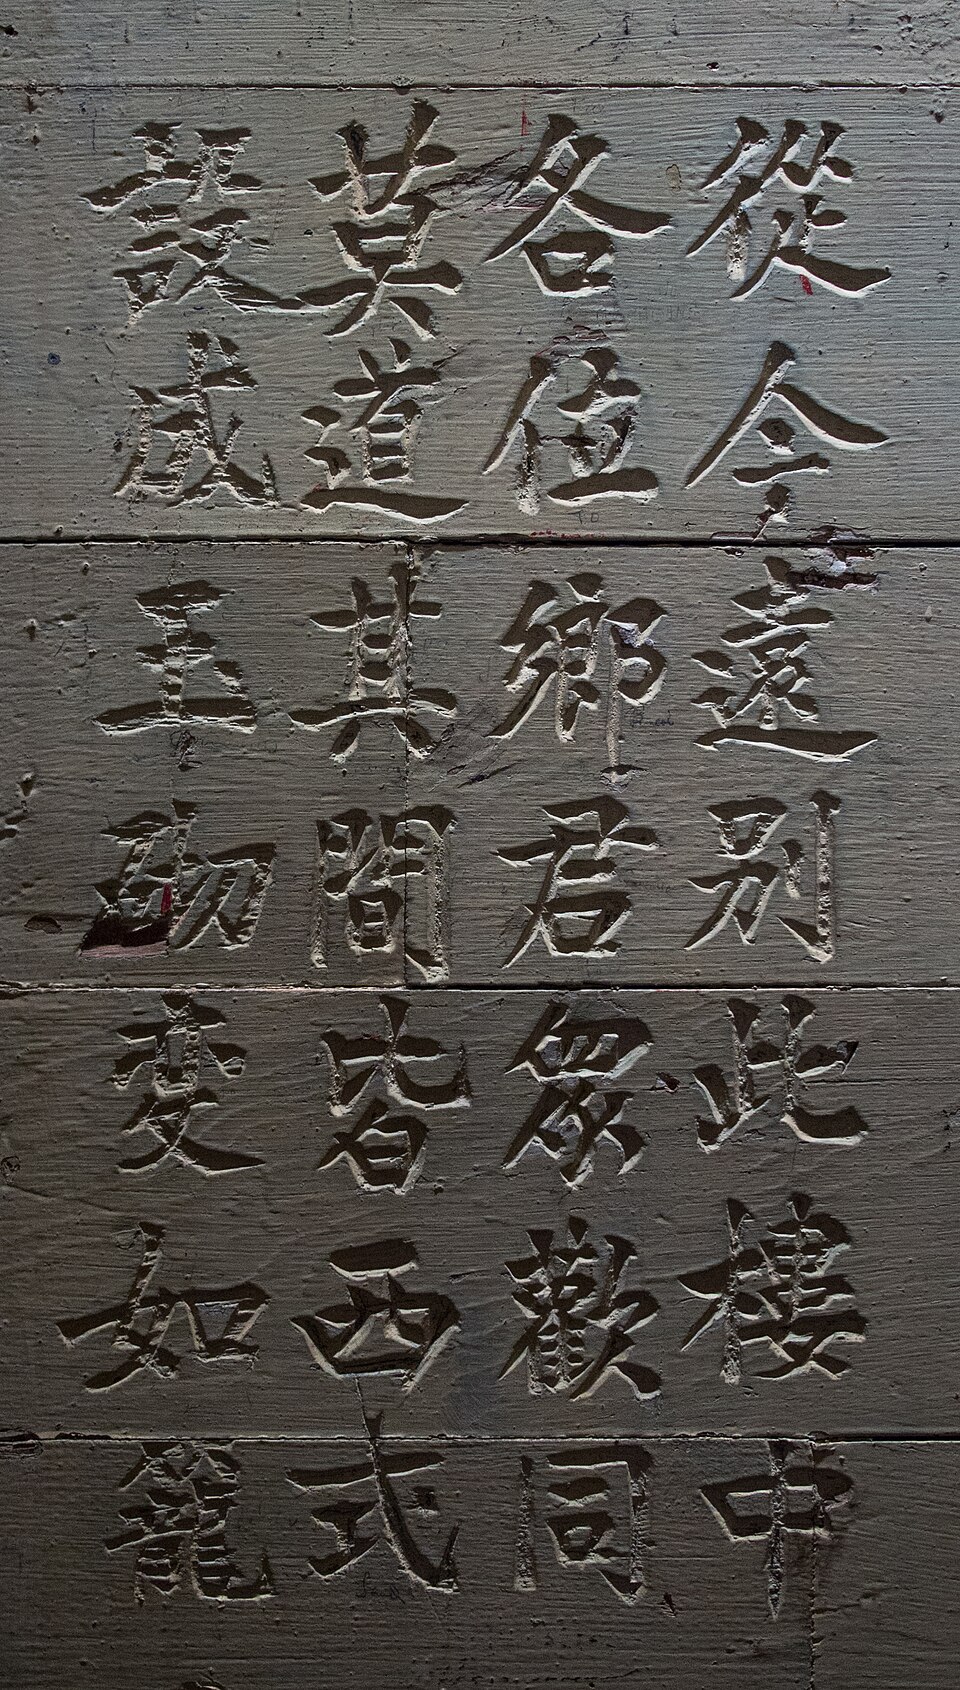 從今遠別此樓中
各位鄉君眾歡同
莫道其間皆西式
設成玉砌变如籠